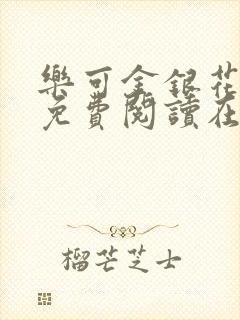 樂可金銀花
免費閱讀在
榴芒芝士